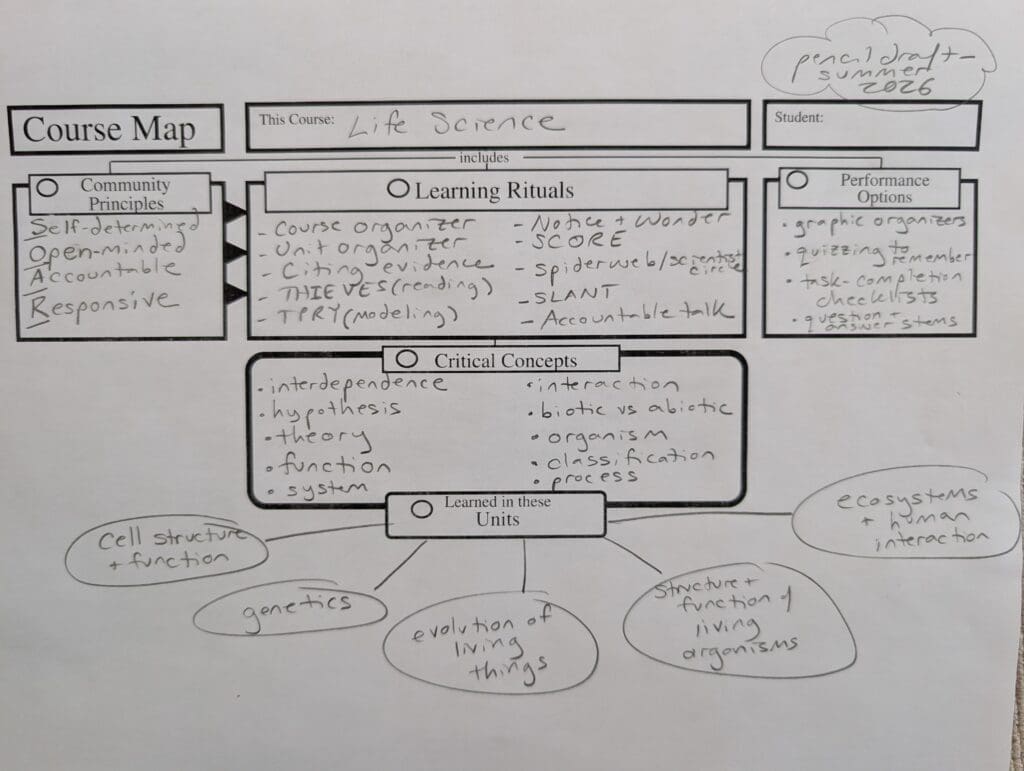 pencil draft-
summer
2026
Course Map
This Course: Life Science
Student:
includes
Community
Principles
Self-determined
Open-minded
Accountable
Responsive
Learning Rituals
- Course organizer
- Unit organizer
- Citing evidence
- THIEVES (reading)
- TPRY (modeling)
- Notice + Wonder
- SCORE
- Spiderweb/scientist
circle
- SLANT
- Accountable talk
Performance
Options
• graphic organizers
• quizzing to
remember
• task-completion
checklists
• question +
answer stems
Critical Concepts
• interdependence
• hypothesis
• theory
• function
• system
• interaction
• biotic vs abiotic
• organism
• classification
• process
Learned in these
Units
cell structure
+ function
genetics
evolution of
living
things
structure +
function of
living
organisms
ecosystems
+ human
interaction